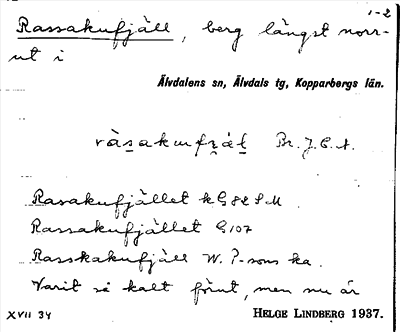 1-2
Rassakufjäll, berg längst norr-
ut i
Älvdalens sn, Älvdals tg, Kopparbergs län.
ràsakufjäl Br. J. E. A.
Rasakufjället k G 82 S M
Rassakufjället G 107
Rasskakufjäll W. ?-sons ka.
Varit så kalt förut, men nu är
XVII 34 HELGE LINDBERG 1937.